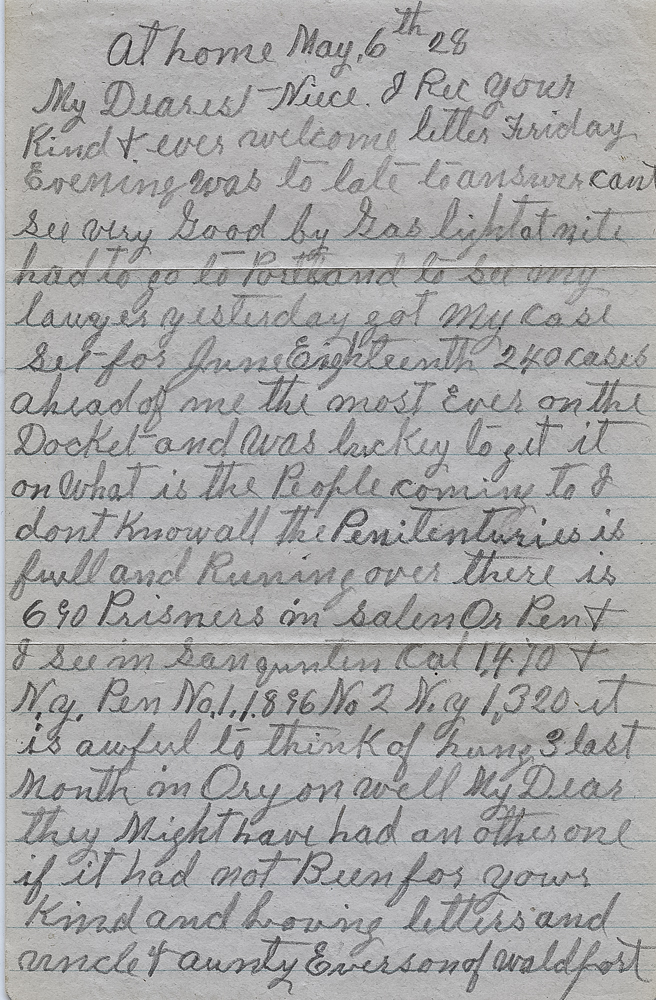 At home May, 6th 28
My Dearest Niece. I Rec your
Kind & ever welcome letter Friday
Evening was to late to answer cant
See very Good by Gas light at nite
had to go to Portland to see my
lauyer yesterday got my case
Set for June Eighteenth 240 cases
ahead of me the most Ever on the
Docket and was luckey to get it
on What is the People coming to I
dont Know all the Penitenturies is
full and Runing over there is
690 Prisners in Salen Or Pen &
I See in Sanquntin Cal 1,470 &
N.y. Pen No.1.1.896 No 2 N.y 1,320 it
is awful to think of hung 3 last
Month in Ory on well My Dear
they Might have had an other one
if it had not Been for yours
Kind and Loving letters and
uncle & aunty Everson of waldport